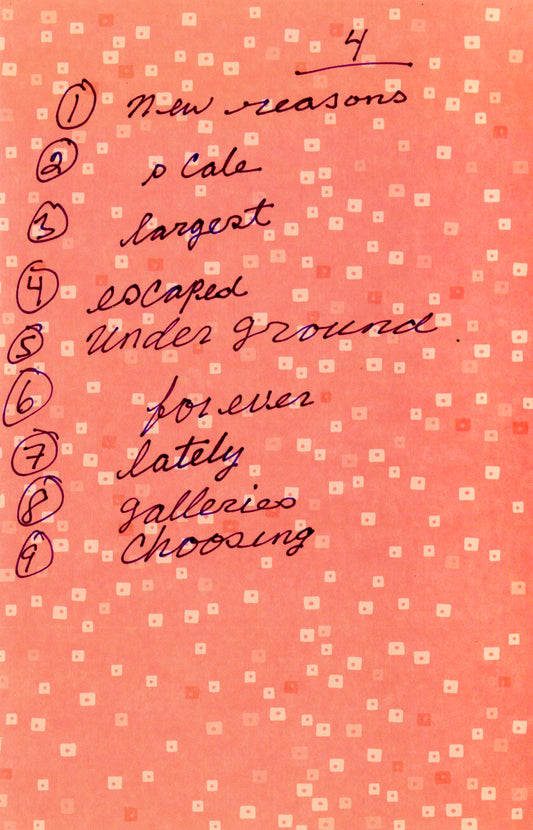 4
① new reasons
② scale
③ largest
④ escaped
⑤ Underground
⑥ forever
⑦ lately
⑧ galleries
⑨ Choosing